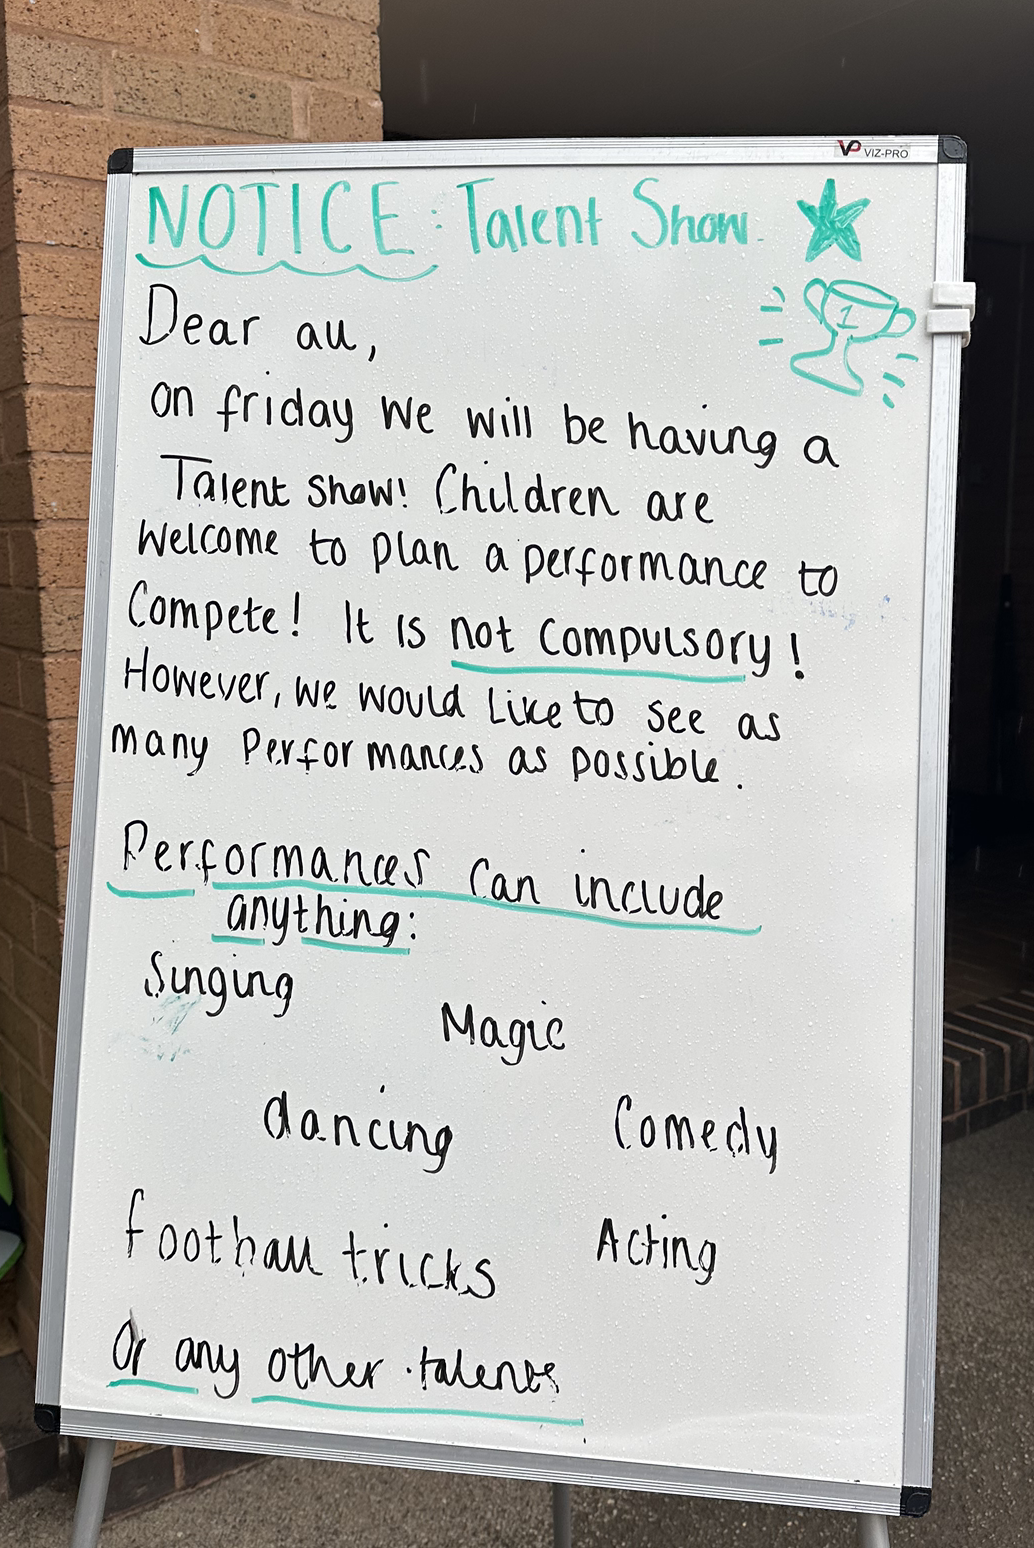 VP VIZ-PRO
NOTICE: Talent Show.
1
Dear all,
on friday we will be having a
Talent Show! Children are
Welcome to plan a performance to
Compete! It is not compulsory!
However, we would like to see as
many Performances as possible.
Performances can include
anything:
Singing
Magic
dancing
Comedy
football tricks
Acting
Or any other talents